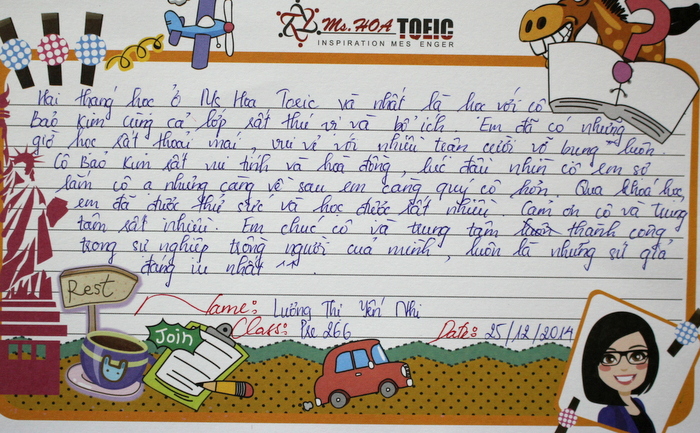 Ms. HOA TOEIC
INSPIRATION MES ENGER
Hai tháng học ở Ms Hoa Toeic và nhất là học với cô
Bảo Kim cùng cả lớp rất thú vị và bổ ích. Em đã có những
giờ học rất thoải mái, vui vẻ với nhiều trận cười vỡ bụng luôn.
Cô Bảo Kim rất vui tính và hoà đồng, lúc đầu nhìn cô em sợ
lắm cô ạ nhưng càng về sau em càng quý cô hơn. Qua khoá học,
em đã được thử sức và học được rất nhiều. Cảm ơn cô và trung
tâm rất nhiều. Em chúc cô và trung tâm thành công
trong sự nghiệp trồng người của mình, luôn là những sứ giả
đáng iu nhất ^^.
Rest
Name: Lường Thị Yến Nhi
Join
Class: Pre 266
Date: 25/12/2014